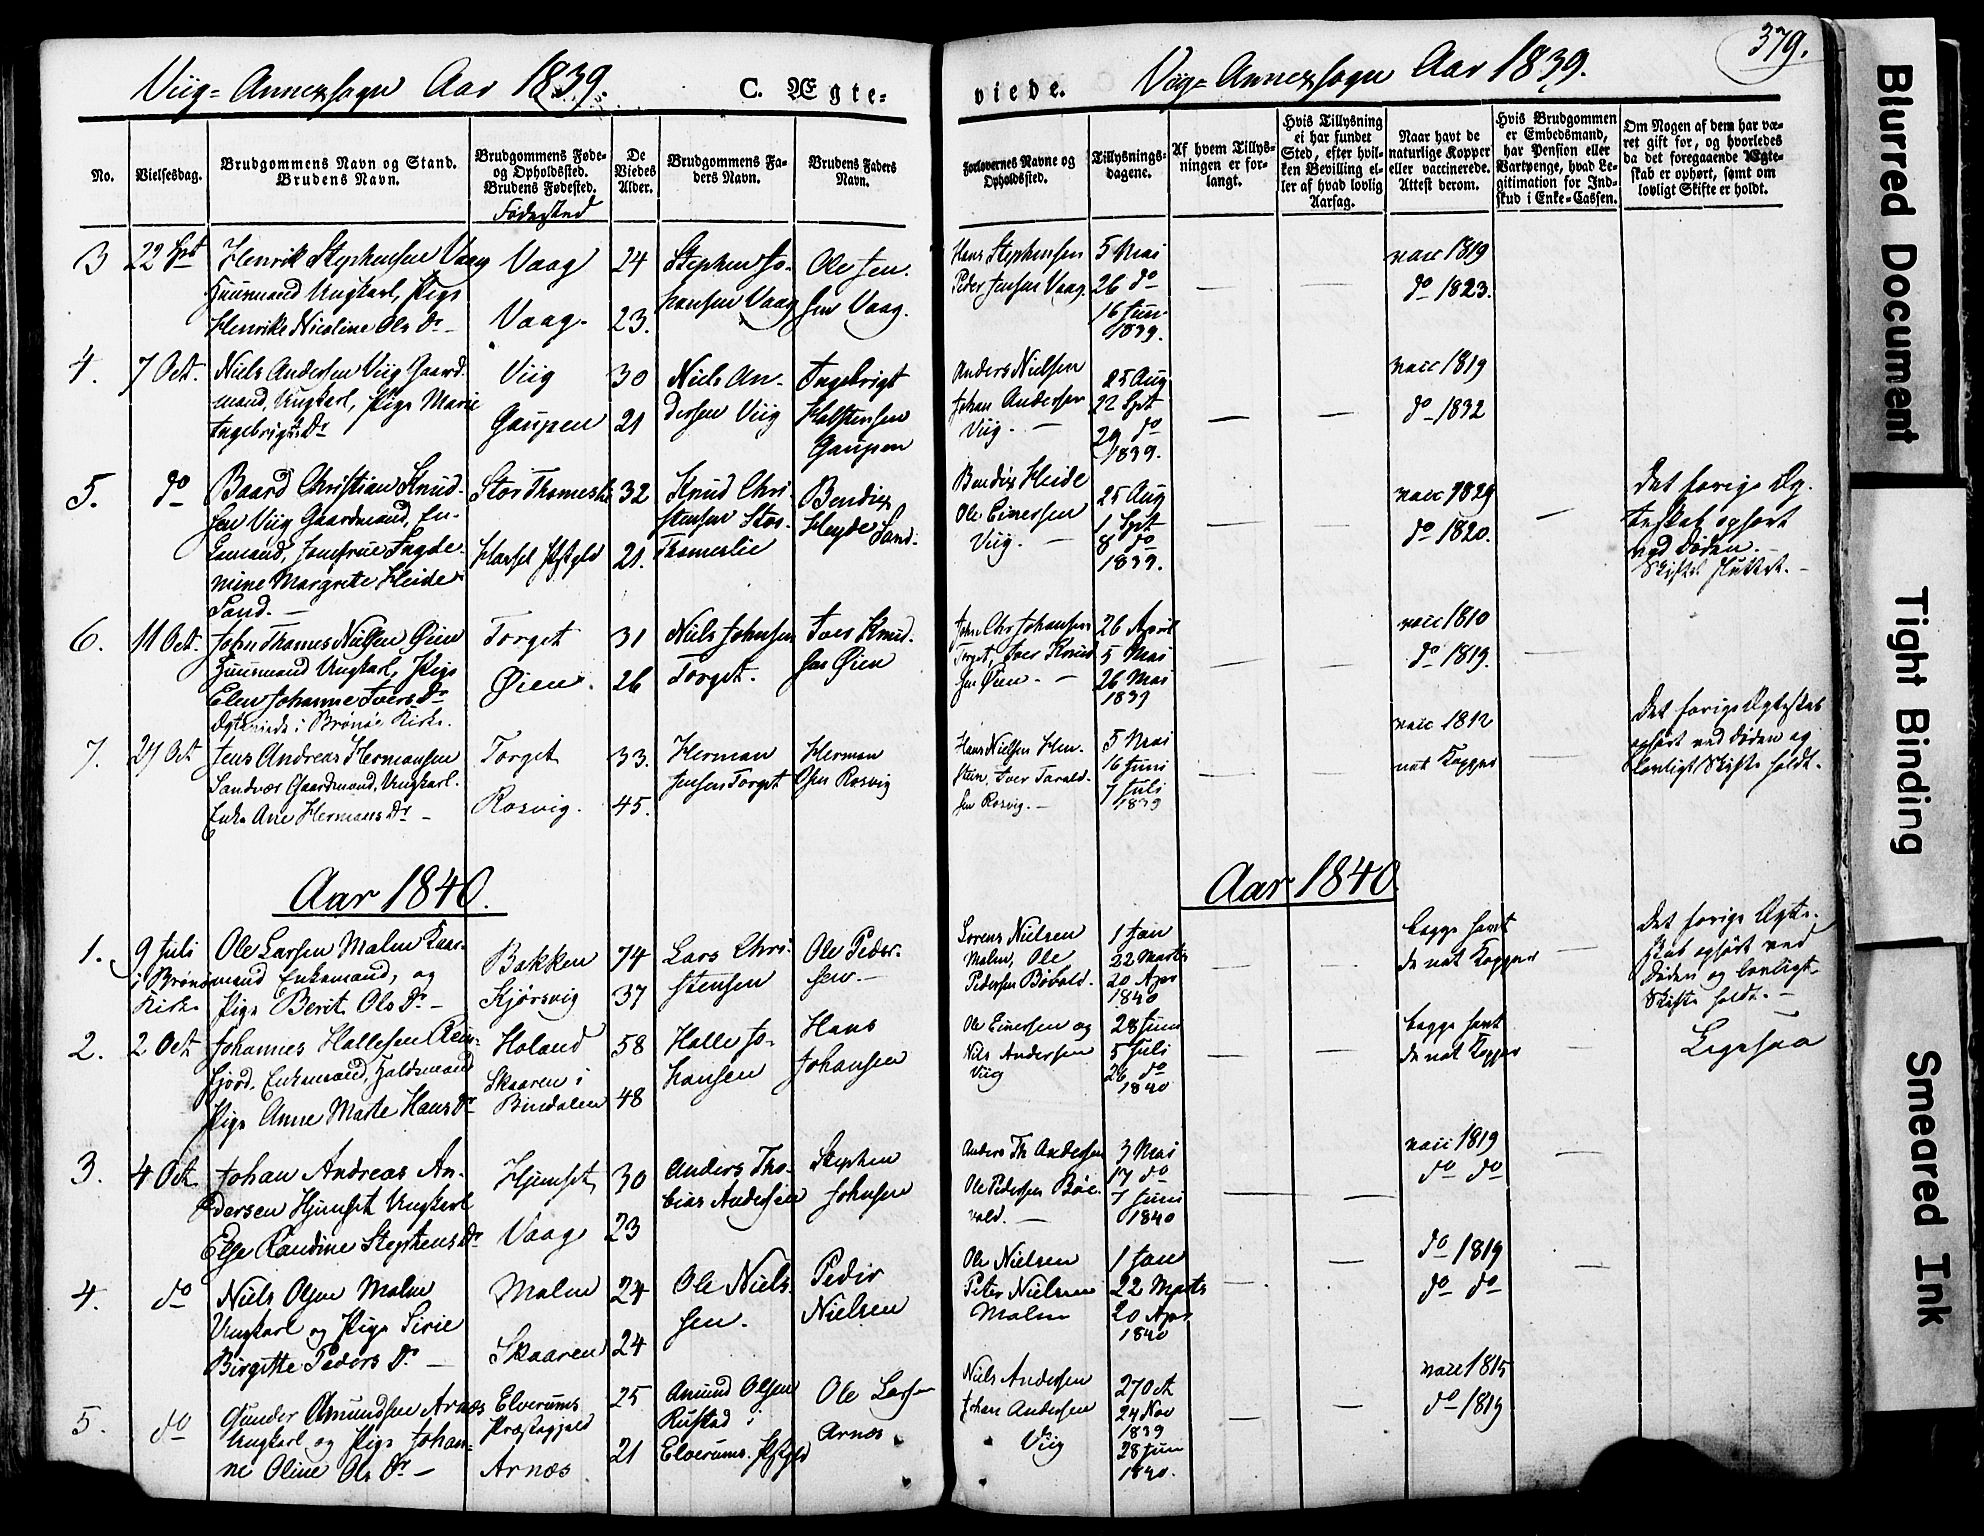 379.
Viig-Annexsogn Aar 1839.
C. Ægte-
viede.
Viig-Annexsogn Aar 1839.
No.
Vielsesdag.
Brudgommens Navn og Stand.
Brudens Navn.
Brudgommens Føde-
og Opholdssted.
Brudens Fødested.
Fødested
De
Viedes
Alder.
Brudgommens Fa-
ders Navn.
Brudens Faders
Navn.
Forlovernes Navne og
Opholdssted.
Tillysnings-
dagene.
Af hvem Tillys-
ningen er for-
langt.
Hvis Tillysning
ei har fundet
Sted, efter hvil-
ken Bevilling el-
ler af hvad lovlig
Aarsag.
Naar havt de
naturlige Kopper
eller vaccinerede.
Attest derom.
Hvis Brudgommen
er Embedsmand,
har Pension eller
Vartpenge, hvad Le-
gitimation for Ind-
skud i Enke-Cassen.
Om Nogen af dem har væ-
ret gift før, og hvorledes
da det foregaaende Ægte-
skab er ophørt, samt om
lovligt Skifte er holdt.
3 22 Spt
Henrik Stephensen Vaag
Huusmand Ungkarl, Pige
Henrike Nicoline Ols Dr
Vaag 24
Vaag. 23.
Stephen Jo-
hansen Vaag
Ole Jen-
sen Vaag.
Hans Stephensen
Peder Jensen Vaag
5 Mai
26 do
16 Juni
1839.
vacc 1819
do 1823.
4. 7 Oct.
Niels Andersen Viig Gaard-
mand, Ungkarl, Pige Marie
Ingebrigts Dr
Viig 30
Gaupen 21
Niels An-
dersen Viig
Ingebrigt
Halstensen
Gaupen
Anders Nielsen
Johan Andersen
Viig. —
25 Aug
22 Spt
29 do
1839.
vacc 1819
do 1832
5. do
Baard Christian Knud-
sen Viig Gaardmand, En-
kemand, Jomfrue Ingde-
mine Margrete Heide
Sand. —
32
21.
Knud Chri-
stensen Stor-
Thomeslie
Bendix
Heyde Sand.
Bendix Heide
Ole Einersen
Viig. —
25 Aug
1 Spt
8 do
1839.
vacc 1829
do 1820.
Det forige Æg-
teskab ophørt
ved Døden. —
Skiftet sluttet. —
6. 11 Oct.
John Thomes Nielsen Øien
Huusmand Ungkarl, Pige
Elen Johanne Ivers Dr
Ægteviede i Brønøe Kirke.
Torget 31
Øien. 26
Niels Johnsen
Torget.
Iver Knud-
sen Øien
John Chr Johansen
Torget, Iver Knud-
sen Øien. —
26 April
5 Mai
26 Mai
1839
vacc 1810
do 1819.
7. 27 Oct
Jens Andreas Hermansen
Sandvær Gaardmand, Ungkarl.
Enke Ane Hermans Dr —
Torget 33.
Rosvig. 45.
Herman
Jensen Torget
Herman
Olsen Rosvig
Hans Nielsen
Iver Torald-
sen Rosvig. —
5 Mai
16 Juni
7 Juli
1839
vacc 1812
nat Kopper
Det forige Ægteskab
ophørt ved Døden og
lovligt Skifte holdt.
Aar 1840.
Aar 1840.
1. 9 Juli
i Brønø
Kirke
Ole Larsen Malm Kaar-
mand Enkemand, og
Pige Berit Ols Dr —
Bakken 74
Kjørsvig 37
Lars Chri-
stensen
Ole Peder-
sen —
Lorens Nielsen
Malm, Ole
Pedersen Bøvald.
1 Jan
22 Marts
20 Apr
1840
begge havt
de nat Kopper
Det forige Ægte-
skab ophørt ved
Døden og lovligt
Skifte holdt. —
2. 2 Oct
Johannes Hallesen
fjord. Enkemand,
Pige Anne Marte Hans Dr
Holand 58
Skaaren i
Bindalen 48
Halle Jo-
hansen
Hans
Johansen
Ole Einersen og
Nils Andersen
Viig
28 Juni
5 Juli
26 do
1840
begge havt
de nat Kopper
Ligesaa
3. 4 Oct.
Johan Andreas An-
dersen Hjemset Ungkarl
Else Randine Stephens Dr
Hjemset 30
Vaag 23
Anders Tho-
bias Andersen
Stephen
Johnsen
Anders Th Andersen
Ole Pedersen Bøe-
vald. —
3 Mai
17 do
7 Juni
1840
vacc 1819
do do
4. do
Niels Olsen Malm
Ungkarl og Pige Sirie
Birgitte Peders Dr —
Malm 24
Skaaren 24
Ole Niels-
sen.
Peder
Nielsen
Ole Nielsen
Peter Nielsen
Malm
1 Jan
22 Marts
20 Apr
1840
do 1819
do do
5. do
Gunder Amundsen Arnæs
Ungkarl og Pige Johan-
ne Oline Ols Dr —
Elverums
Præstegjeld 25
Arnæs 21
Amund Olsen
Rustad i
Elverums Pstgld
Ole Larsen
Arnæs
Niels Andersen
Johan Andersen
Viig
27 Oct
24 Nov
1839
28 Juni
1840.
vacc 1815
do 1819
Blurred Document
Tight Binding
Smeared Ink